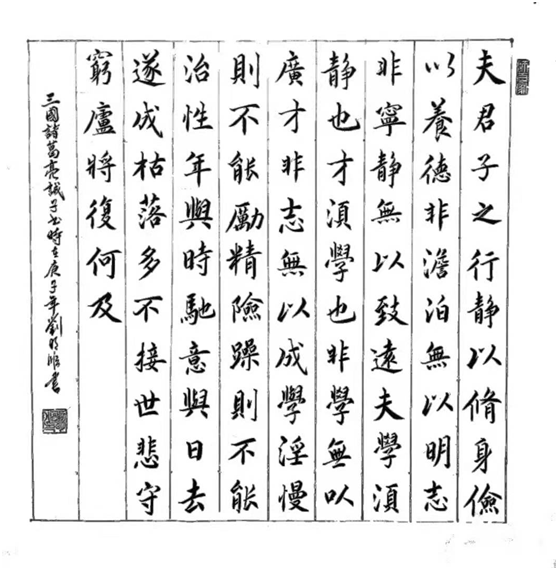 夫君子之行静以脩身儉
以養德非澹泊無以明志
非寧静無以致遠夫學湏
静也才湏學也非學無以
廣才非志無以成學淫慢
則不能勵精險躁則不能
治性年與時馳意與日去
遂成枯落多不接世悲守
窮廬將復何及
三國諸葛亮誡子書時在庚子年劉書